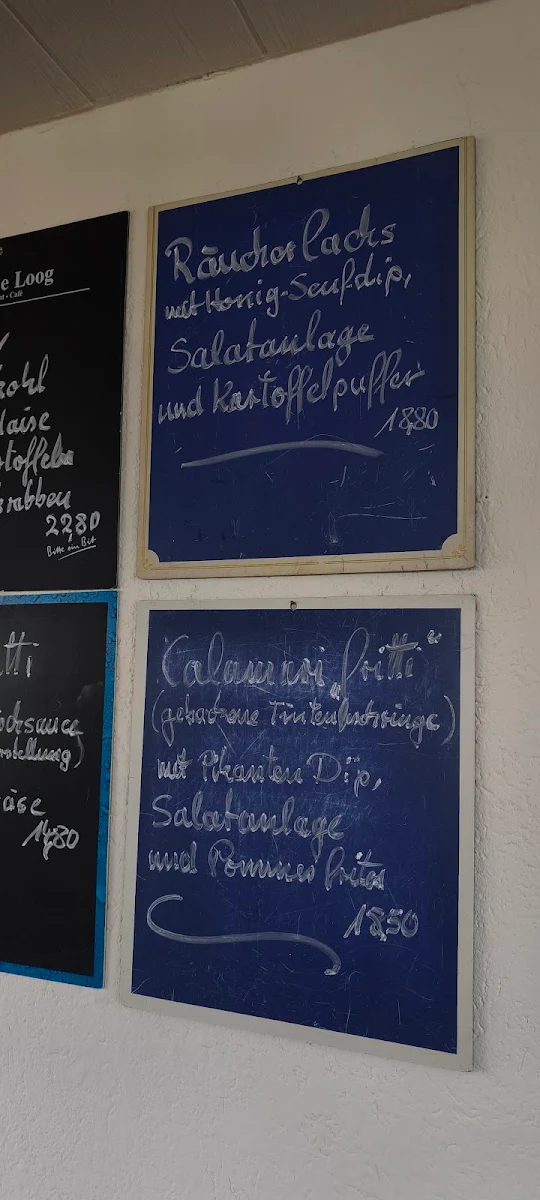 e Loog
kohl
laise
toffeln
krabben
22,80
Bitte ein Bit
tti
cksauce
rstellung)
äse
14,80
Räucherlachs
mit Honig-Senfdip,
Salatanlage
und Kartoffelpuffer
18,80
Calamari „fritti“
(gebackene Tintenfischringe)
mit Pikanten Dip,
Salatanlage
und Pommes frites
18,50